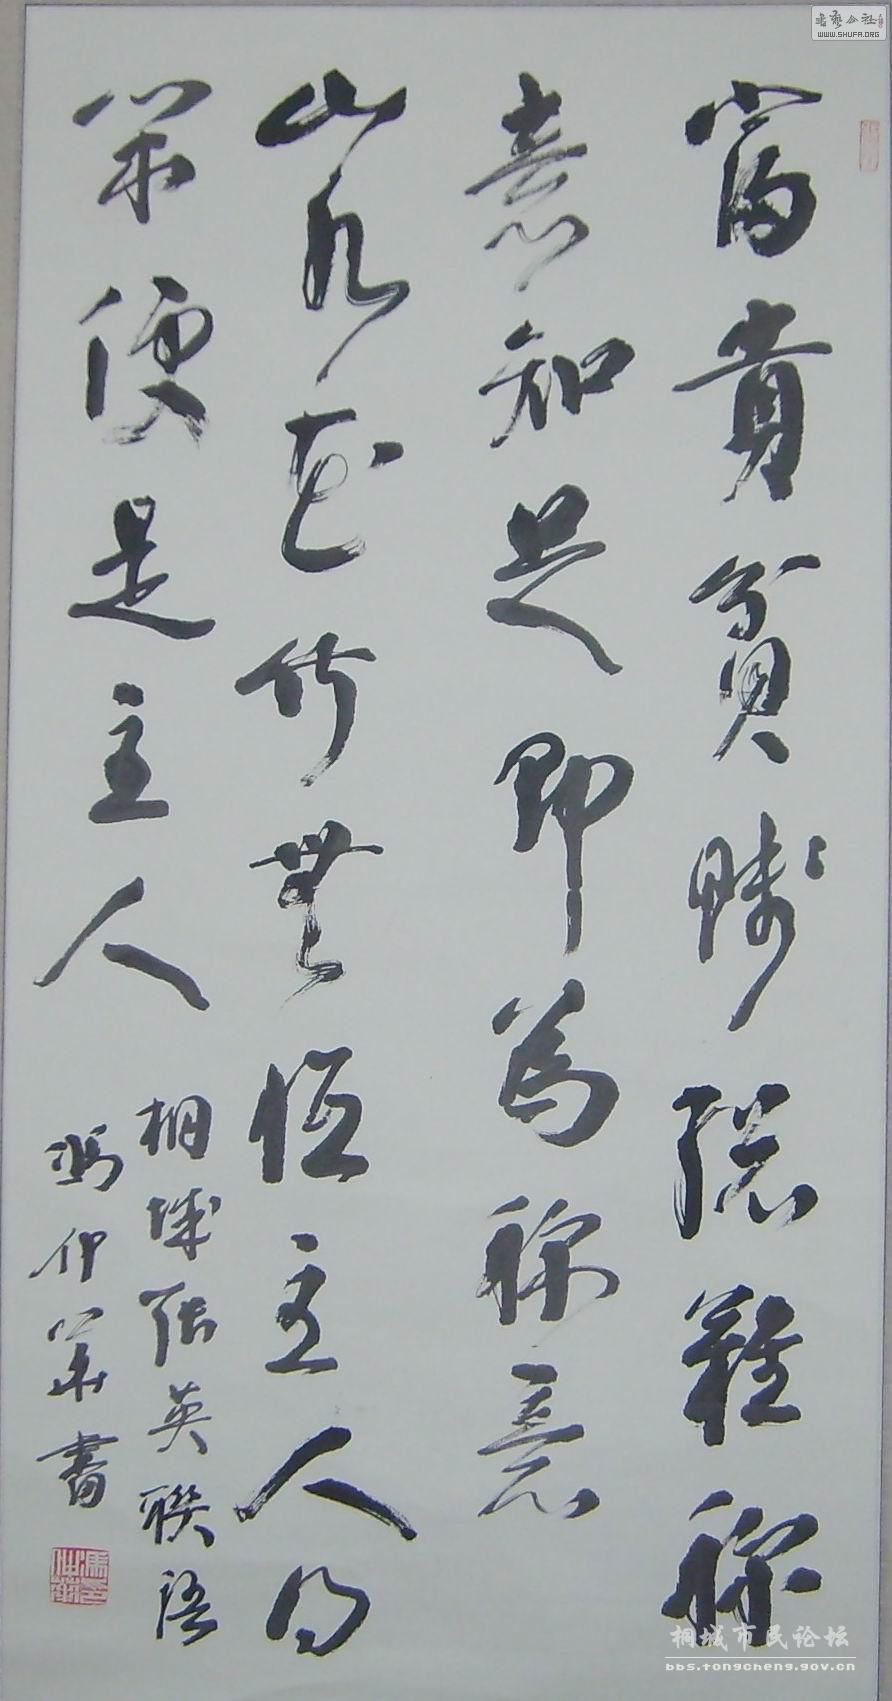 富貴貧賤總難稱
意知足即為稱意
山水花竹無恒主人得
閑便是主人
桐城張英聯語
馮仲華書
書藝公社
WWW.SHUFA.ORG
桐城市民论坛
bbs.tongcheng.gov.cn